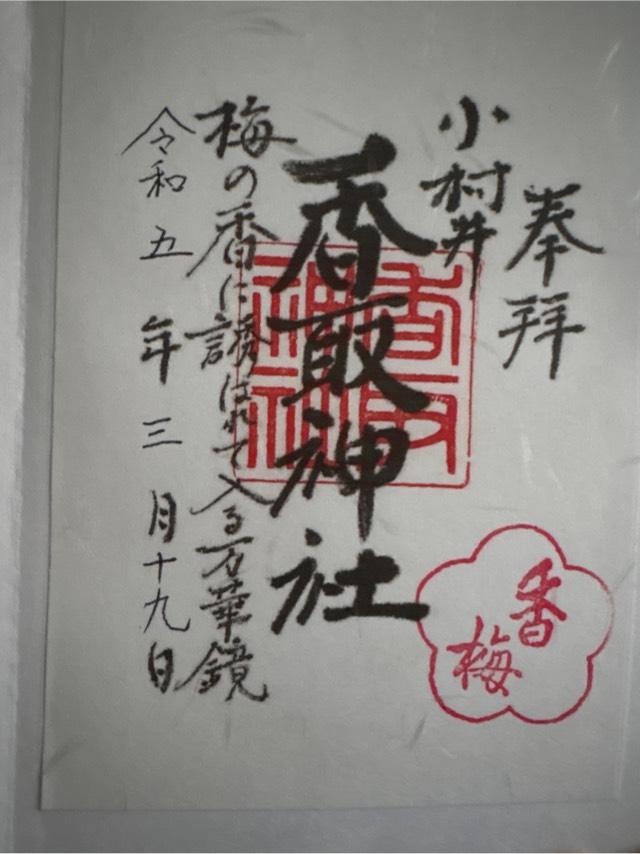 奉拝
小村井
香取神社
香取神社
梅の香に誘はれて入る万華鏡
令和五年三月十九日
香梅